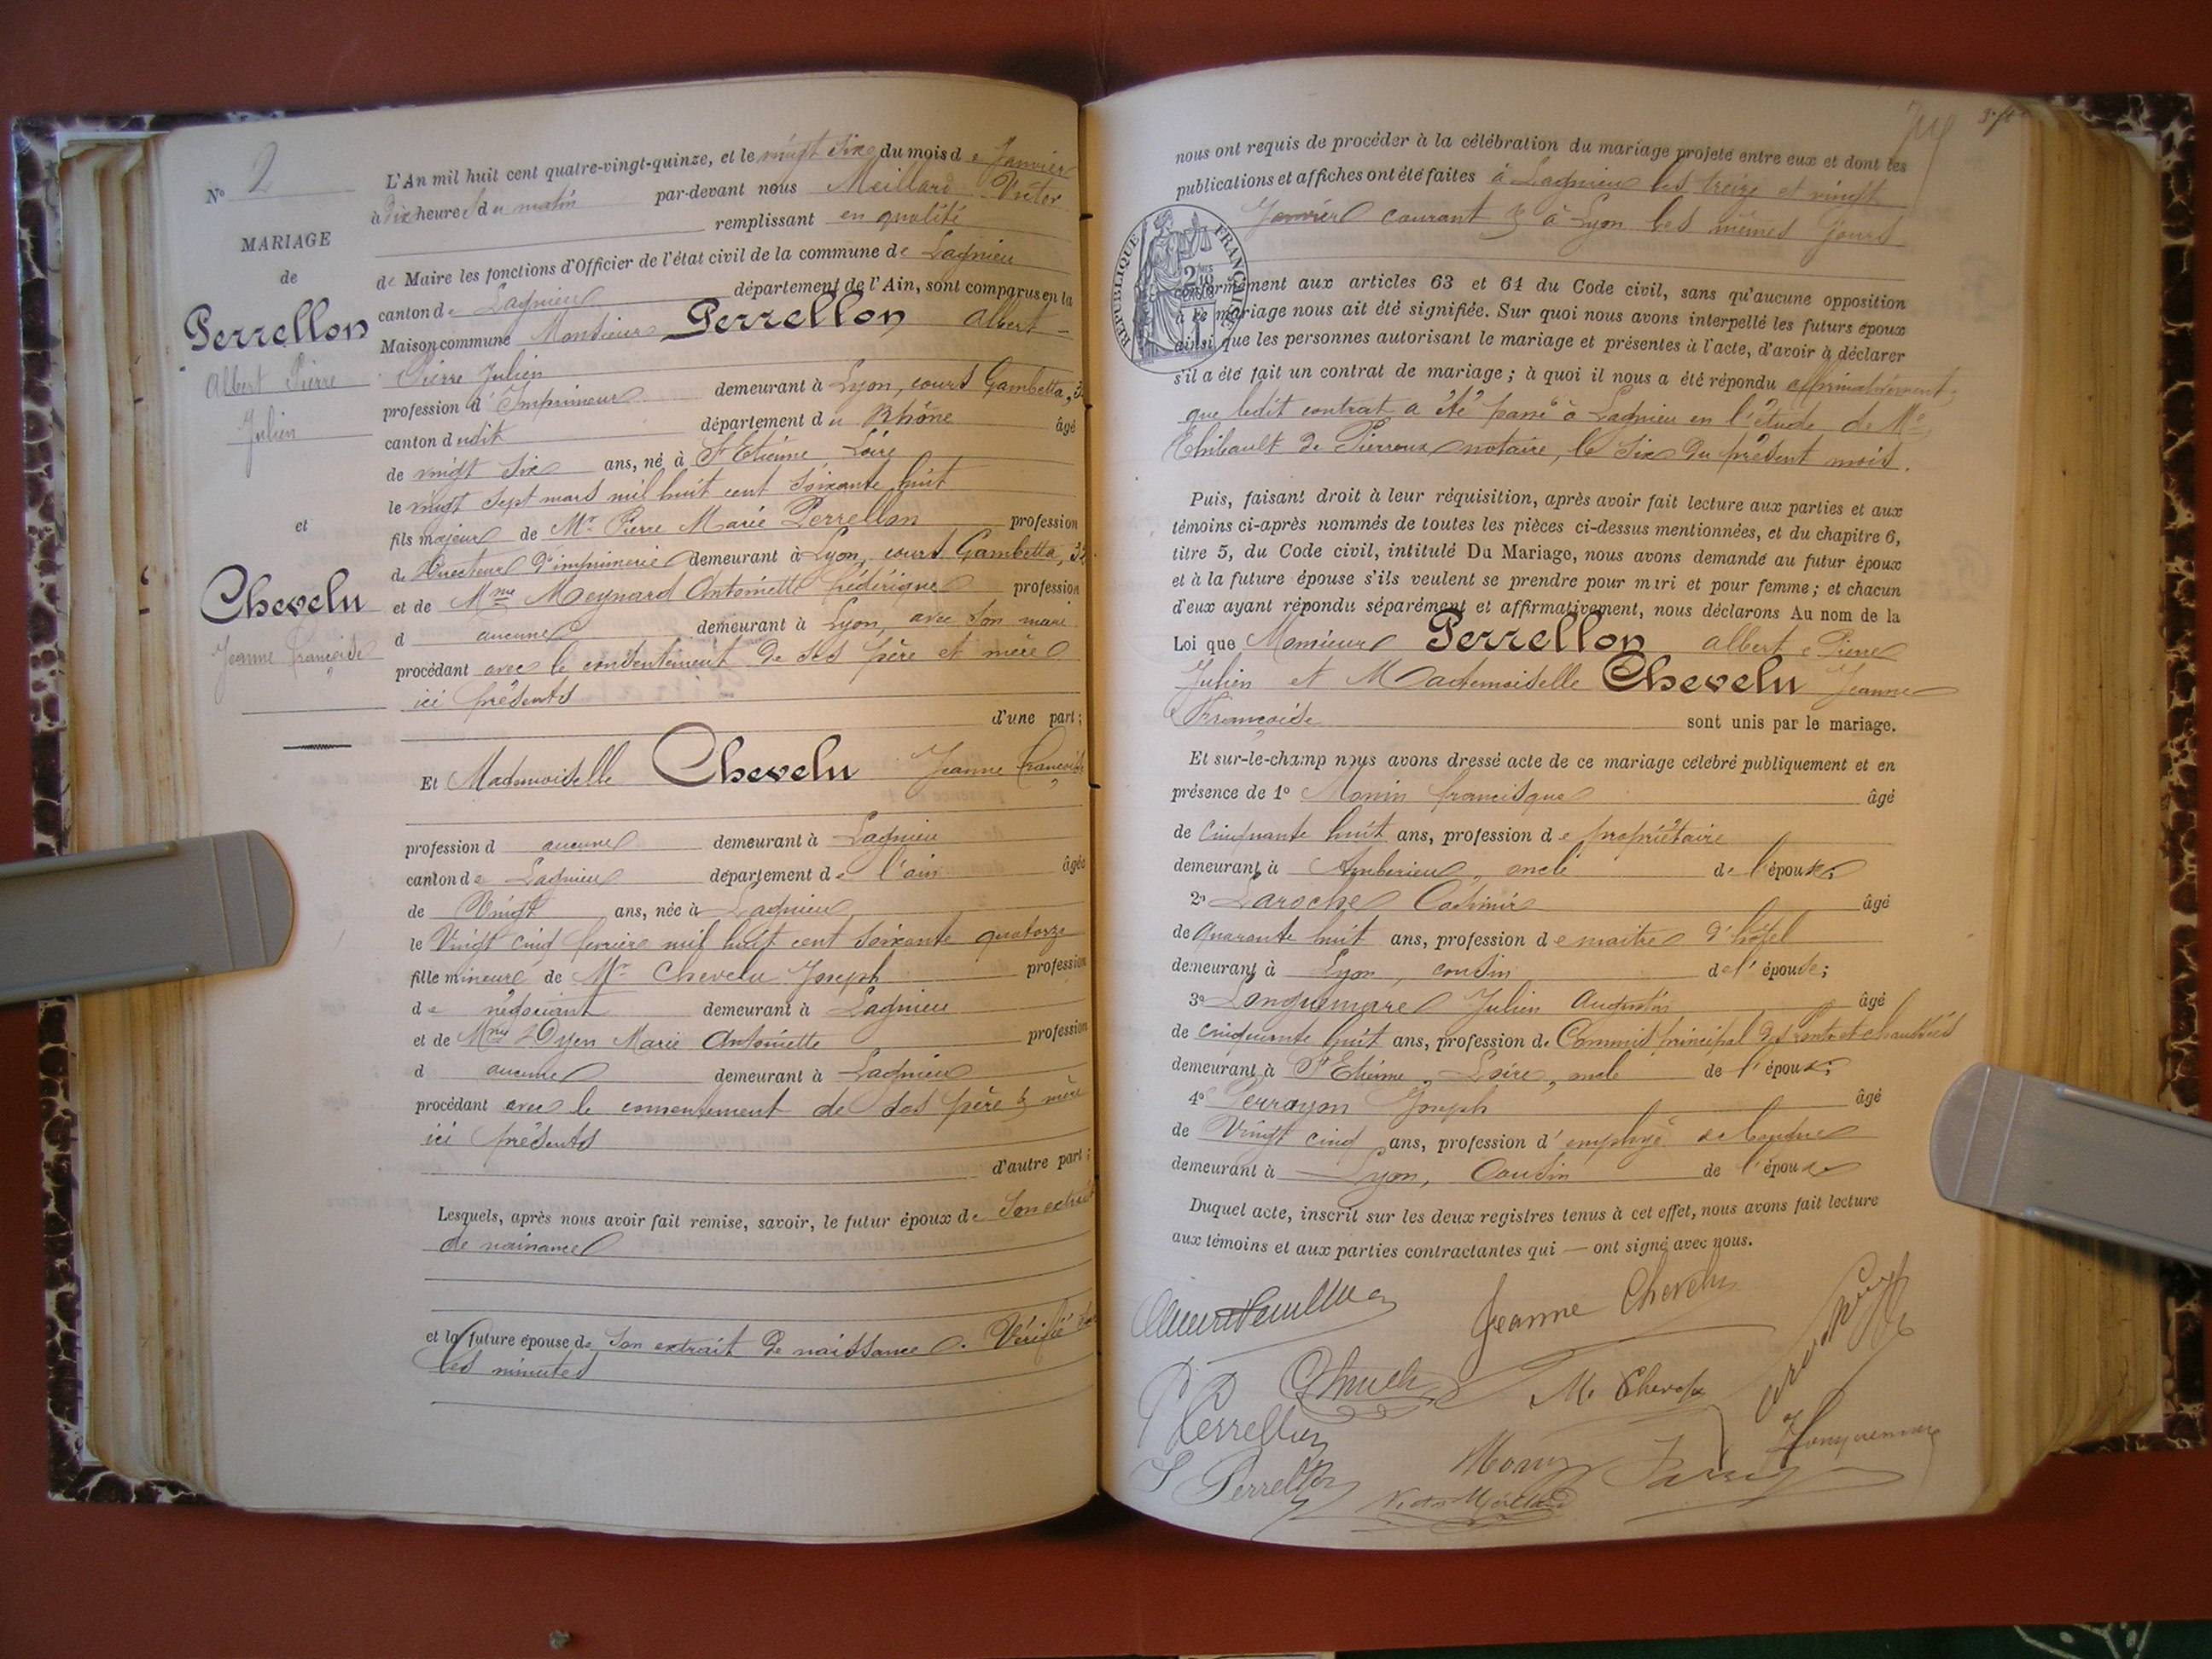 N° 2
MARIAGE
de
Perrellon
Albert Pierre
Julien
et
Chevelu
Jeanne Françoise
L'An mil huit cent quatre-vingt-quinze, et le vingt six du mois de Janvier
à dix heures du matin par-devant nous Meillard Victor
remplissant en qualité
de Maire les fonctions d'Officier de l'état civil de la commune de Lagnieu
canton de Lagnieu département de l'Ain, sont comparus en la
Maison commune Monsieur Perrellon Albert
Pierre Julien
profession d'Imprimeur demeurant à Lyon, cours Gambetta, 32
canton dudit département du Rhône âgé
de vingt six ans, né à St Etienne Loire
le vingt sept mars mil huit cent soixante huit
fils majeur de Mr Pierre Marie Perrellon profession
de Directeur d'imprimerie demeurant à Lyon, cours Gambetta, 32
et de Mme Meynard Antoinette frédérique profession
d aucune demeurant à Lyon, avec son mari
procédant avec le consentement de ses père et mère
ici présents
d'une part;
Et Mademoiselle Chevelu Jeanne françoise
profession d aucune demeurant à Lagnieu
canton de Lagnieu département de l'ain âgée
de Vingt ans, née à Lagnieu
le Vingt cinq fevrier mil huit cent soixante quatorze
fille mineure de Mr Chevelu Joseph profession
de négociant demeurant à Lagnieu
et de Mme Dyen Marie Antoinette profession
d aucune demeurant à Lagnieu
procédant avec le consentement de ses père & mère
ici présents
d'autre part;
Lesquels, après nous avoir fait remise, savoir, le futur époux de son extrait
de naissance
et la future épouse de son extrait de naissance. Vérifié sur
les minutes
nous ont requis de procéder à la célébration du mariage projeté entre eux et dont les
publications et affiches ont été faites à Lagnieu les treize et vingt
Janvier courant & à Lyon les mêmes jours
RÉPUBLIQUE FRANÇAISE
conformément aux articles 63 et 64 du Code civil, sans qu'aucune opposition
à ce mariage nous ait été signifiée. Sur quoi nous avons interpellé les futurs époux
ainsi que les personnes autorisant le mariage et présentes à l'acte, d'avoir à déclarer
s'il a été fait un contrat de mariage; à quoi il nous a été répondu affirmativement,
que ledit contrat a été passé à Lagnieu en l'étude de Me
Thibault de Pierreux notaire, le six du présent mois.
Puis, faisant droit à leur réquisition, après avoir fait lecture aux parties et aux
témoins ci-après nommés de toutes les pièces ci-dessus mentionnées, et du chapitre 6,
titre 5, du Code civil, intitulé Du Mariage, nous avons demandé au futur époux
et à la future épouse s'ils veulent se prendre pour mari et pour femme; et chacun
d'eux ayant répondu séparément et affirmativement, nous déclarons Au nom de la
Loi que Monsieur Perrellon Albert Pierre
Julien et Mademoiselle Chevelu Jeanne
Françoise sont unis par le mariage.
Et sur-le-champ nous avons dressé acte de ce mariage célébré publiquement et en
présence de 1° Monin francisque âgé
de Cinquante huit ans, profession de propriétaire
demeurant à Amberieu, oncle de l'épouse;
2° Laroche Casimir âgé
de quarante huit ans, profession de maitre d'hôtel
demeurant à Lyon, cousin de l'épouse;
3° Longuemare Julien Augustin âgé
de cinquante huit ans, profession de Commis principal des ponts et chaussées
demeurant à St Etienne, Loire, oncle de l'époux;
4° Perrayon Joseph âgé
de Vingt cinq ans, profession d'employé de
demeurant à Lyon, Cousin de l'époux
Duquel acte, inscrit sur les deux registres tenus à cet effet, nous avons fait lecture
aux témoins et aux parties contractantes qui — ont signé avec nous.
Jeanne Chevelu
Perrellon
Perrellon